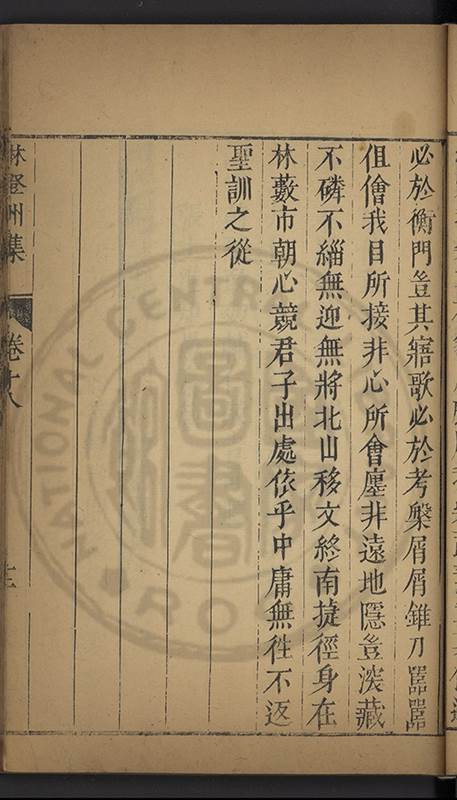 必於衡門豈其寤歌必於考槃屑屑錐刀嚣嚣
伹儈我目所接非心所會廛非遠地隱豈湥藏
不磷不緇無迎無將北山移文終南捷徑身在
林藪市朝心競君子出處依乎中庸無徃不返
聖訓之從
林登州集
卷十八